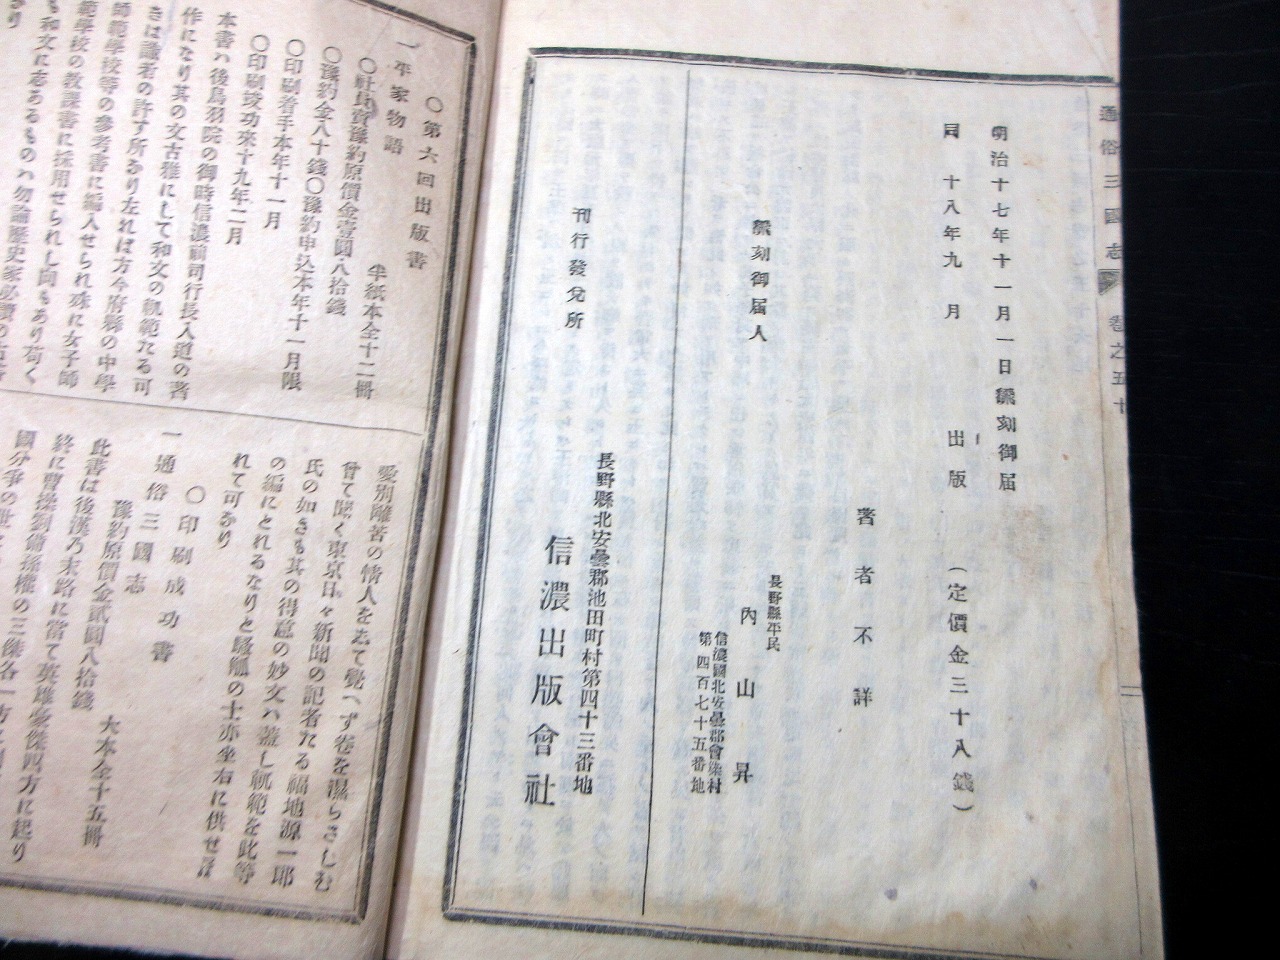 通俗三國志 卷之五十
明治十七年十一月一日飜刻御届
同 十八年九月 出版 (定價金三十八錢)
著者不詳
長野縣平民
飜刻御届人 內山昇
信濃國北安曇郡會染村
第四百七十五番地
長野縣北安曇郡池田町村第四十三番地
刊行發兌所
信濃出版會社
二
○第六回出版書
一平家物語 半紙本全十二冊
○社員實豫約原價金壹圓八拾錢
○豫約金八十錢○豫約申込本年十一月限
○印刷着手本年十一月
○印刷竣功來十九年二月
本書ハ後鳥羽院の御時信濃前司行長入道の著
作になり其の文古雅にして和文の軌範たる可
きは識者の許す所なり左れば方今府縣の中學
師範學校等の參考書に編入せられ殊に女子師
範學校の教課書に採用せられし向もあり苟く
も和文に志あるものハ勿論歷史家必讀の
愛別離苦の情人を志て覺へず卷を濕らさしむ
曾て聞く東京日々新聞の記者たる福地源一郎
氏の如きも其の得意の妙文ハ蓋し軌範を此等
の編にとれるなりと騷觚の士亦坐右に供せ
れて可なり
○印刷成功書
一通俗三國志 大本全十五冊
豫約原價金貳圓八拾錢
此書は後漢乃末路に當て英雄豪傑四方に起り
終に曹操劉備孫權の三傑各一方
國分爭の世